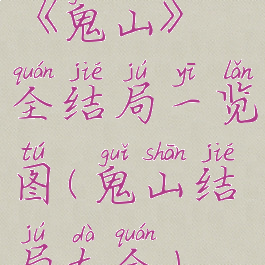 《鬼山》
quán jié jú yī lǎn
全结局一览
tú guǐ shān jié
图(鬼山结
jú dà quán
局大全)